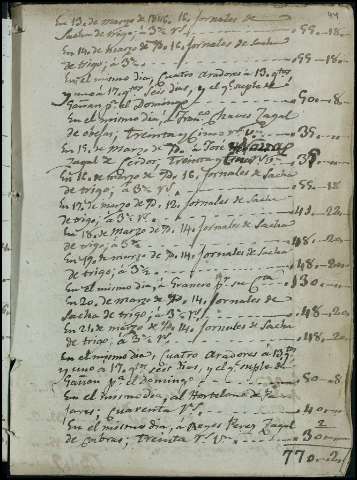 44
En 13, de marzo de 1846, 16, jornales de
sacha de trigo, à 3½ rˢ 55-18
En 14, de marzo de Yᵈ. 16, jornales de sacha
de trigo, à 3½ 55-18
En el mismo dia, cuatro Aradores à 13, qᵗᵒˢ
y uno à 17, qᵗᵒˢ seis dias, y el qᵉ suple de
Gañan pʳ el Domingo 50-8
En el mismo dia, à Franᶜᵒ Chaves Zagal
de obejas, treinta y Cinco rˢ vⁿ 35
En 15, de Marzo de Yᵈ. a José
Zagal de Cerdos, Treinta y Cinco rˢ vⁿ 35
En 16, de marzo de Yᵈ. 16, jornales de Sacha
de trigo, à 3½ rˢ 55-18
En 17, de marzo de Yᵈ. 12, jornales de Sacha
de trigo, à 3½ rˢ 41-22
En 18, de Marzo de Yᵈ. 14, jornales de Sacha
de trigo, à 3½ 48-20
En 19, de marzo de Yᵈ. 14, jornales de Sacha
de trigo, à 3½ 48-20
En el mismo dia, à Francisco pʳ su 130
En 20, de marzo de Yᵈ. 14, jornales de
sacha de trigo, à 3½ rˢ 48-20
En 21, de marzo de Yᵈ. 14, jornales de Sacha
de trigo, à 3½ rˢ 48-20
En el mismo dia, cuatro Aradores à 13, qᵗᵒˢ
y uno à 17, qᵗᵒˢ seis dias, y el qᵉ suple de
Gañan pʳ el Domingo 50-8
En el mismo dia, al Hortelano de
cuarenta rˢ 40
En el mismo dia, à Reyes Perez Zagal
de Cabras, treinta rˢ vⁿ 30
770-2